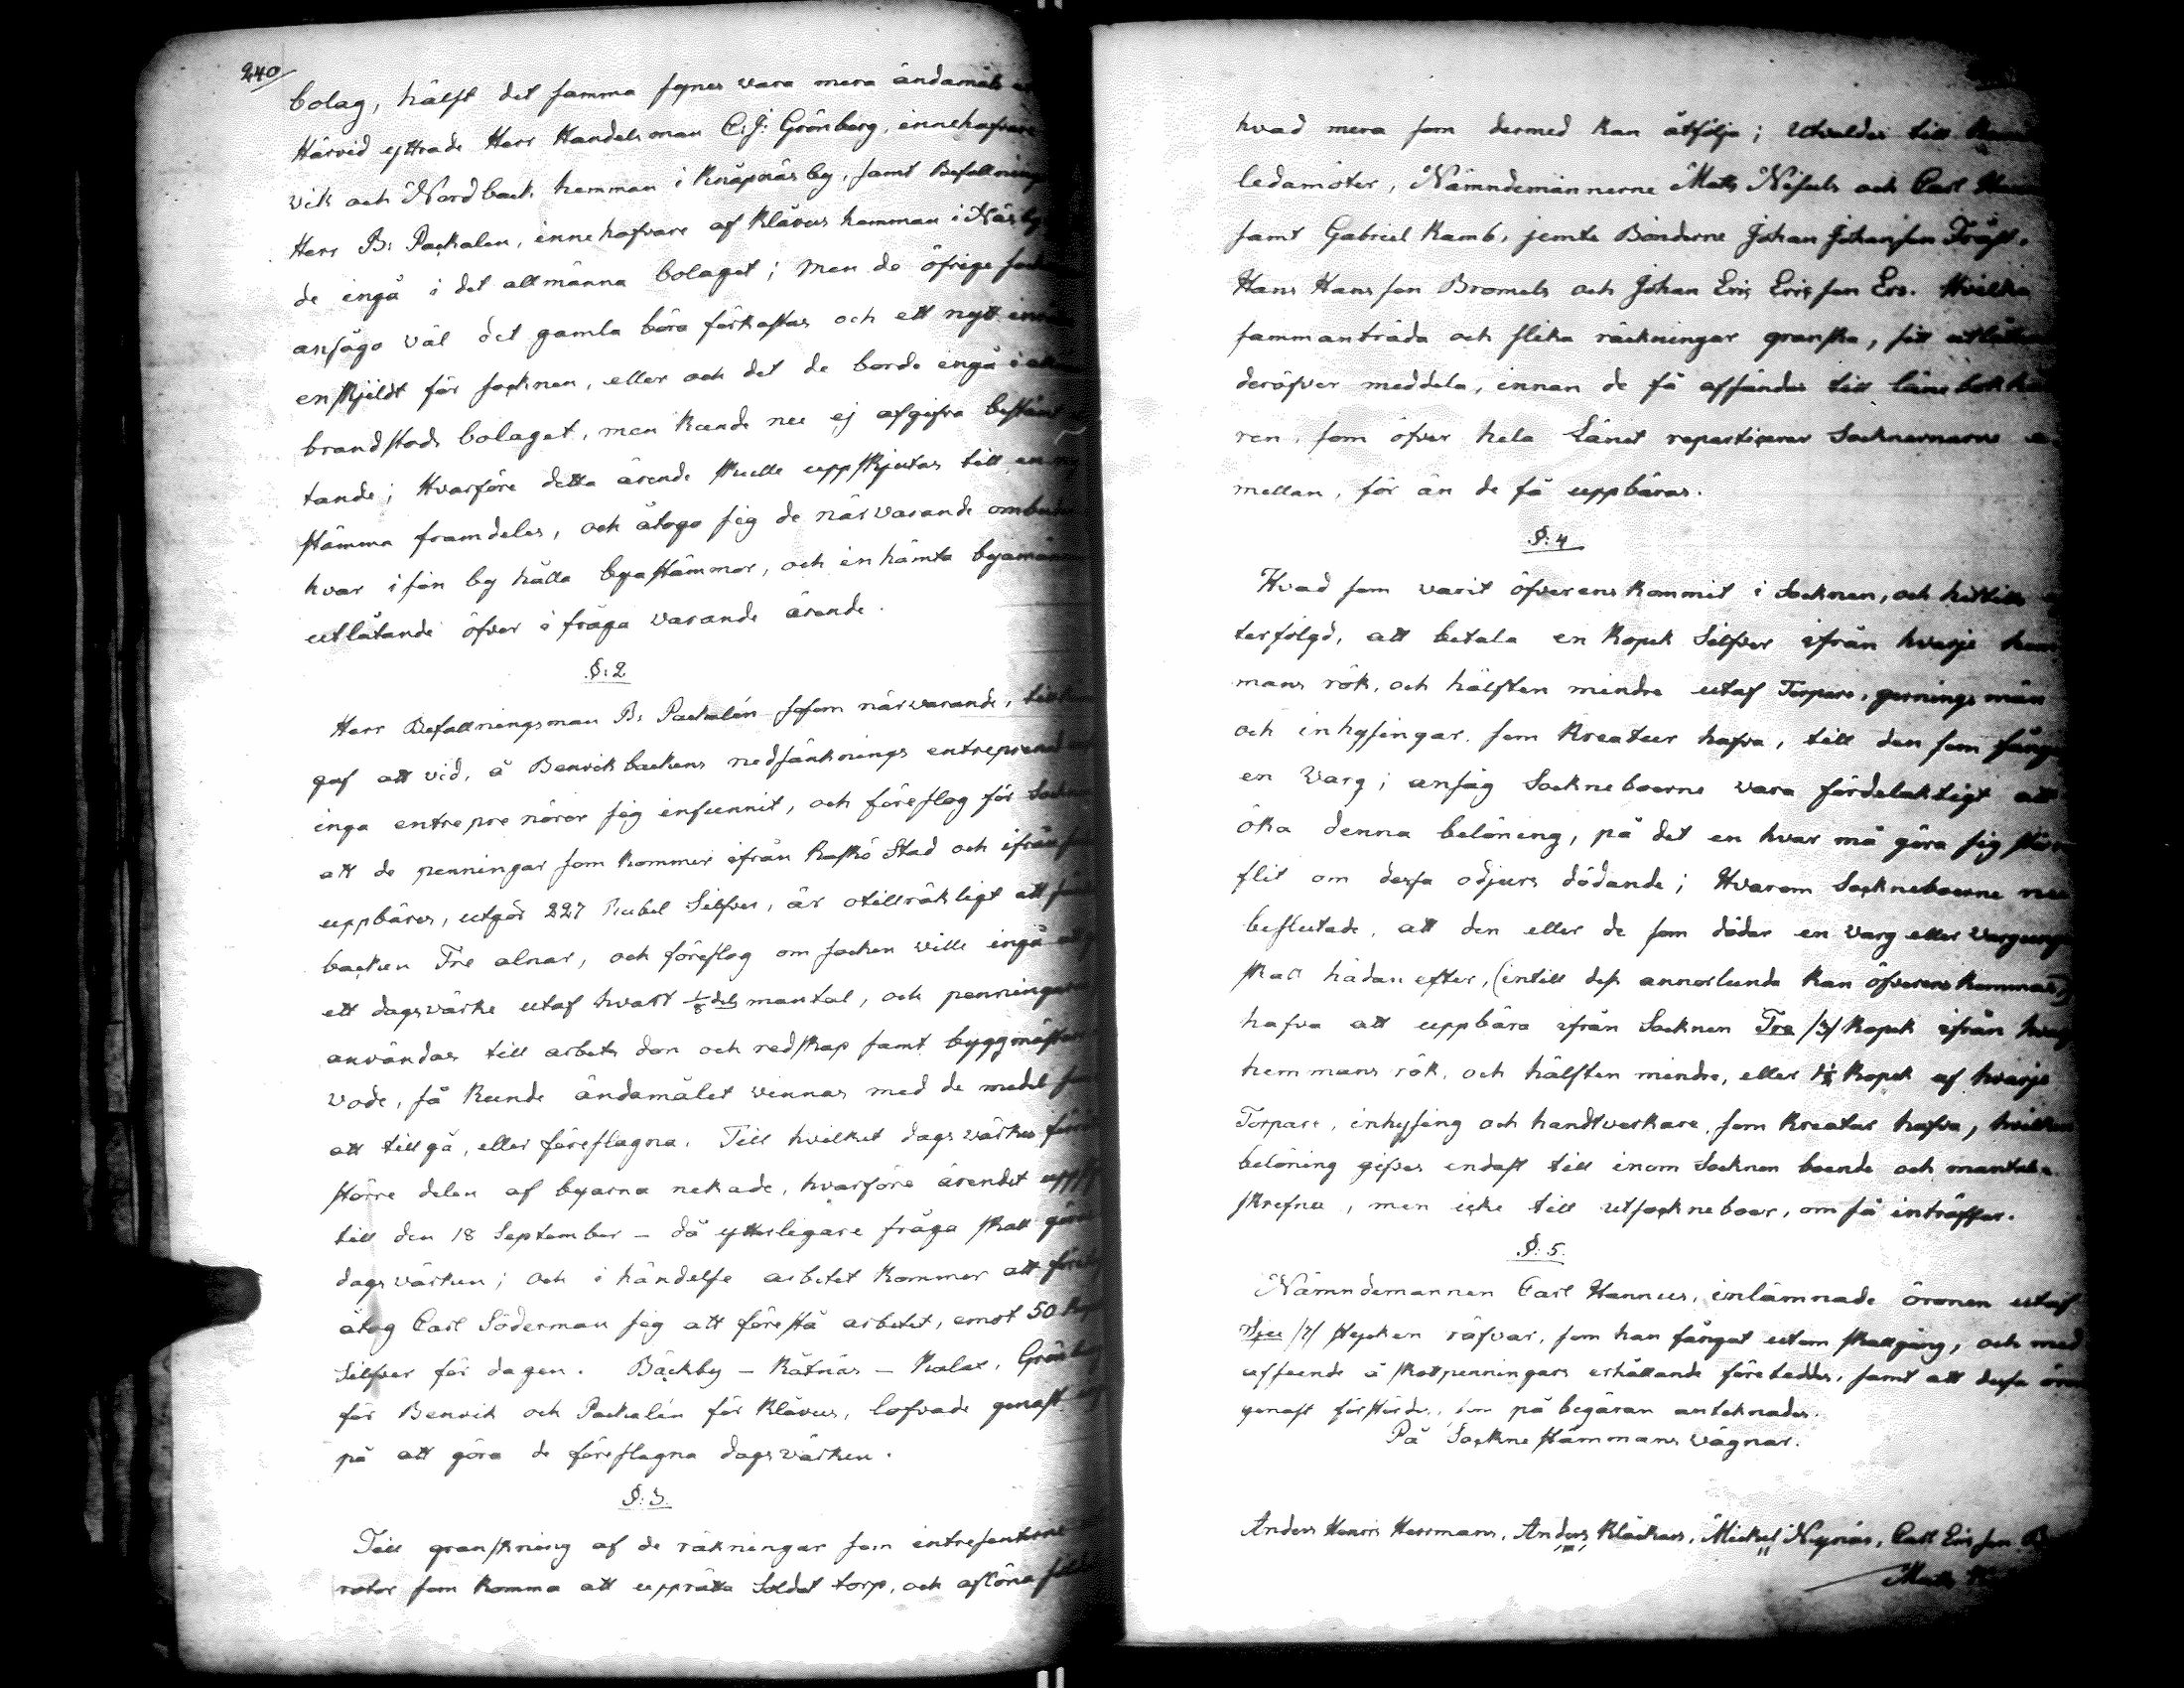 240
bolag, hälst det samma synes vara mera ändamåls
Härvid yttrade Herr Handelsman C: J: Grönberg, innehafvare
vik och Nordback hemman i Knåpnäs by, samt Befallnings
Herr B: Packalen, innehafvare af Klåvus hemman i Näsby
de ingå i det allmänna bolaget; Men de öfrige
ansågo väl det gamla böra förkastas och ett nytt
enskjildt för socknen, eller och det de borde ingå i
brandstods bolaget, men kunde nu ej afgifva bestämt
tande; Hvarföre detta ärende skulle uppskjutas till
stämma framdeles, och åtogo sig de närvarande
hvar i sin by hålla byastämmor, och inhämta
utlåtande öfver i fråga varande ärende.
§: 2
Herr Befallningsman B: Packalén såsom närvarande,
gaf att vid, å Benvik backens nedsänknings
inga entreprenörer sig infunnit, och föreslog för
att de penningar som kommer ifrån Kaskö Stad och ifrån
uppbäres, utgör 227 Rubel Silfver, är otillräkligt att
backen Tre alnar, och föreslog om socken ville ingå
ett dagsvärke utaf hvart 1/8 dels mantal, och
användas till arbets don och redskap samt
vode, så kunde ändamålet vinnas med de medel
att tillgå, eller föreslagna. Till hvilket dagsvärkes
större delen af byarna nekade, hvarföre ärendet
till den 18 September – då ytterligare fråga skall
dagsvärken; och i händelse arbetet kommer att
åtog Carl Söderman sig att förestå arbetet, emot 50
Silfver för dagen. Bäckby – Rätnäs – Kalax,
för Benvik och Packalén för Klåvus, lofvade genast
på att göra de föreslagna dagsvärken.
§: 3.
Till granskning af de räkningar som
rotar som komma att upprätta Soldat torp, och aflöna
hvad mera som dermed kan åtfölja; Utvaldes till
ledamöter, Nämndemännerne Mats Nisuls och Carl
samt Gabriel Ramb, jemte Bönderne Johan Johansson Träsk,
Hans Hansson Bromels och Johan Eric Ericsson Ers. Hvilka
sammanträda och slika räckningar granska, sitt
deröfver meddela, innan de få affändas till
ren, som öfver hela Länet repartiserar Socknernarne
mellan, för än de få uppbäras.
§: 4
Hvad som varit öfverenskommit i Socknen, och hittills
terfölgd, att betala en Kopek Silfver ifrån hvarje
mans rök, och hälften mindre utaf Torpare, gernings män
och inhysingar, som Kreatur hafva, till den som
en Varg; ansåg Sockneboerne vara fördelaktigt att
öka denna belöning, på det en hvar må göra sig
flit om dessa odjurs dödande; Hvarom Sockneboerne
beslutade, att den eller de som dödar en Varg eller
skall hädan efter, (intill dess annorlunda kan öfverenskommas)
hafva att uppbära ifrån Socknen Tre /3/ Kopek ifrån
hemmans rök, och hälften mindre, eller 1½ Kopek af hvarje
Torpare, inhysing och handtverkare, som Kreatur hafva,
belöning gifves endast till inom Socknen boende och
skrefne, men icke till utsockneboer, om så inträffar.
§: 5.
Nämndemannen Carl Hannus, inlämnade öronen utaf
Sju /7/ stycken räfvar, som han fångat utom skallgång, och med
afseende å skottpenningars erhållande företeddes, samt att dessa
genast förstördes, på begäran anteknades.
På Socknestämmans vägnar.
Anders Herrmans, Anders Klåckars, Mickel Nynäs, Carl Ericsson